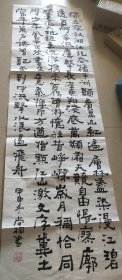 獨立寒秋湘江北去橘子洲頭看萬山紅遍層林盡染漫江碧
透百舸爭流鷹擊長空魚翔淺底萬類霜天競自由悵寥廓
問蒼茫大地誰主沉浮攜來百侶曾遊憶往昔崢嶸歲月稠恰同
學少年風華正茂書生意氣揮斥方遒指點江山激揚文字糞土
當年萬戶侯曾記否到中流擊水浪遏飛舟 甲申